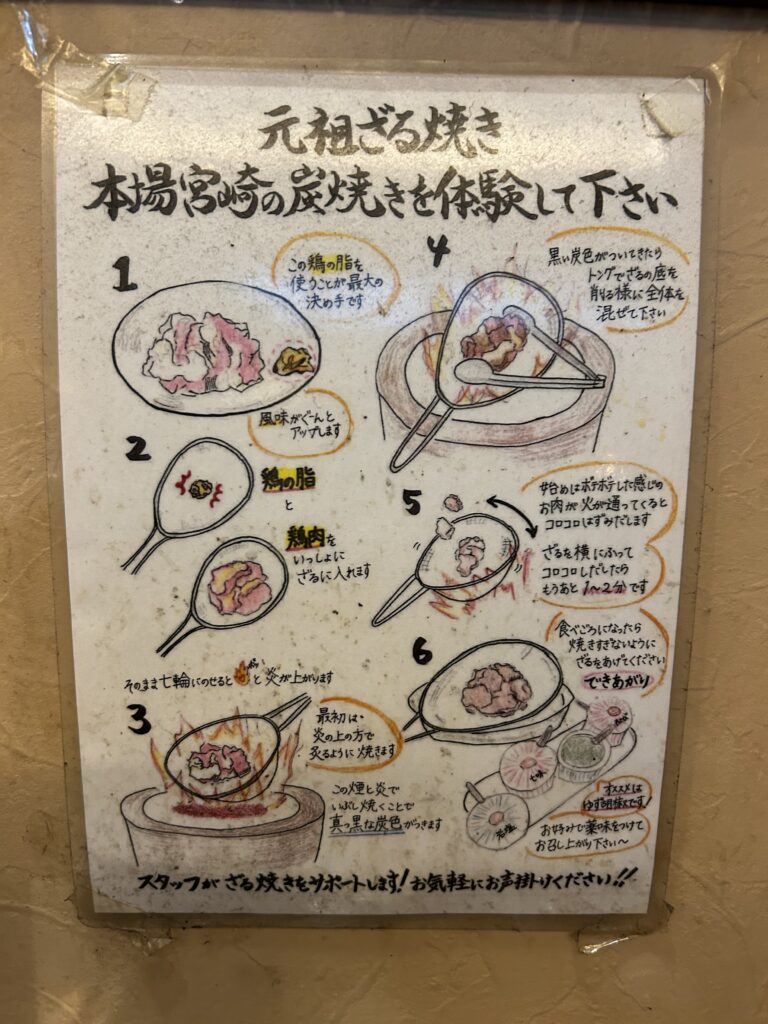 元祖ざる焼き
本場宮崎の炭焼きを体験して下さい
1
この鶏の脂を
使うことが最大の
決め手です
風味がぐーんと
アップします
2
鶏の脂
と
鶏肉を
いっしょに
ざるに入れます
そのまま七輪にのせると
と炎が上がります
3
最初は、
炎の上の方で
炙るように焼きます
この煙と炎で
いぶし焼くことで
真っ黒な炭色がつきます
4
黒い炭色がついてきたら
トングでざるの底を
削る様に全体を
混ぜて下さい
5
始めはボテボテした感じの
お肉が火が通ってくると
コロコロはずみだします
ざるを横にふって
コロコロしだしたら
もうあと1〜2分です
6
食べごろになったら
焼きすぎないように
ざるをあげてください
できあがり
七味
岩塩
オススメは
ゆず胡椒です!
お好みで薬味をつけて
お召し上がり下さい〜
スタッフがざる焼きをサポートします!お気軽にお声掛けください!!